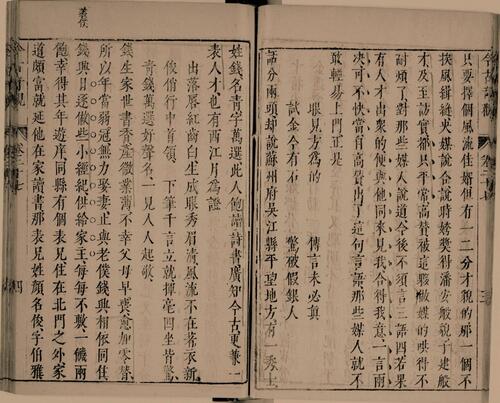 只要擇個風流佳婿但有一二分才貌的那一個不
挨風緝縫央媒說合說時誇獎得潘安般貌子建般
才及至訪實都只平常高贊被這夥做媒的哄得不
耐煩了對那些媒人說道今後不須言三語四若果
有人才出衆的便與他同來見我合得我意一言兩
決可不快當自高贊出了這句言語那些媒人就不
敢輕易上門正是
眼見方爲的　傳言未必眞
試金今有石　驚破假銀人
話分兩頭却說蘇州府吳江縣平望地方有一秀士
姓錢名青字萬選此人飽讀詩書廣知今古更兼一
表人才也有西江月爲證
出落唇紅齒白生成眼秀眉清風流不在著衣新
俊俏行中首領　下筆千言立就揮毫四坐皆驚
青錢萬選好聲名一見人人起敬
錢生家世書香產微業薄不幸父母早喪愈加零替
所以年當弱冠無力娶妻止與老僕錢興相依同住
錢興日逐做些小經紀供給家主每每不敷一饑兩
飽幸得其年遊庠同縣有個表兄住在北門之外家
道頗富就延他在家讀書那表兄姓顏名俊字伯雅
今古奇觀　卷二十七　四